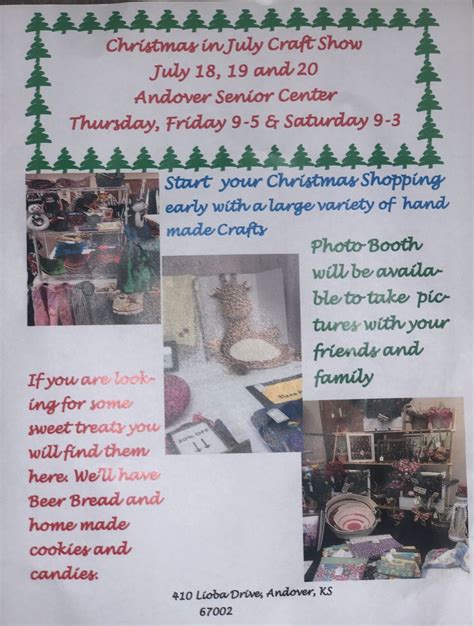 Christmas in July Craft Show
July 18, 19 and 20
Andover Senior Center
Thursday, Friday 9-5 & Saturday 9-3
Start your Christmas Shopping
early with a large variety of hand
made Crafts
Photo Booth
will be availa-
ble to take pic-
tures with your
friends and
family
20% OFF
If you are look-
ing for some
sweet treats you
will find them
here. We'll have
Beer Bread and
home made
cookies and
candies.
410 Lioba Drive, Andover, KS
67002